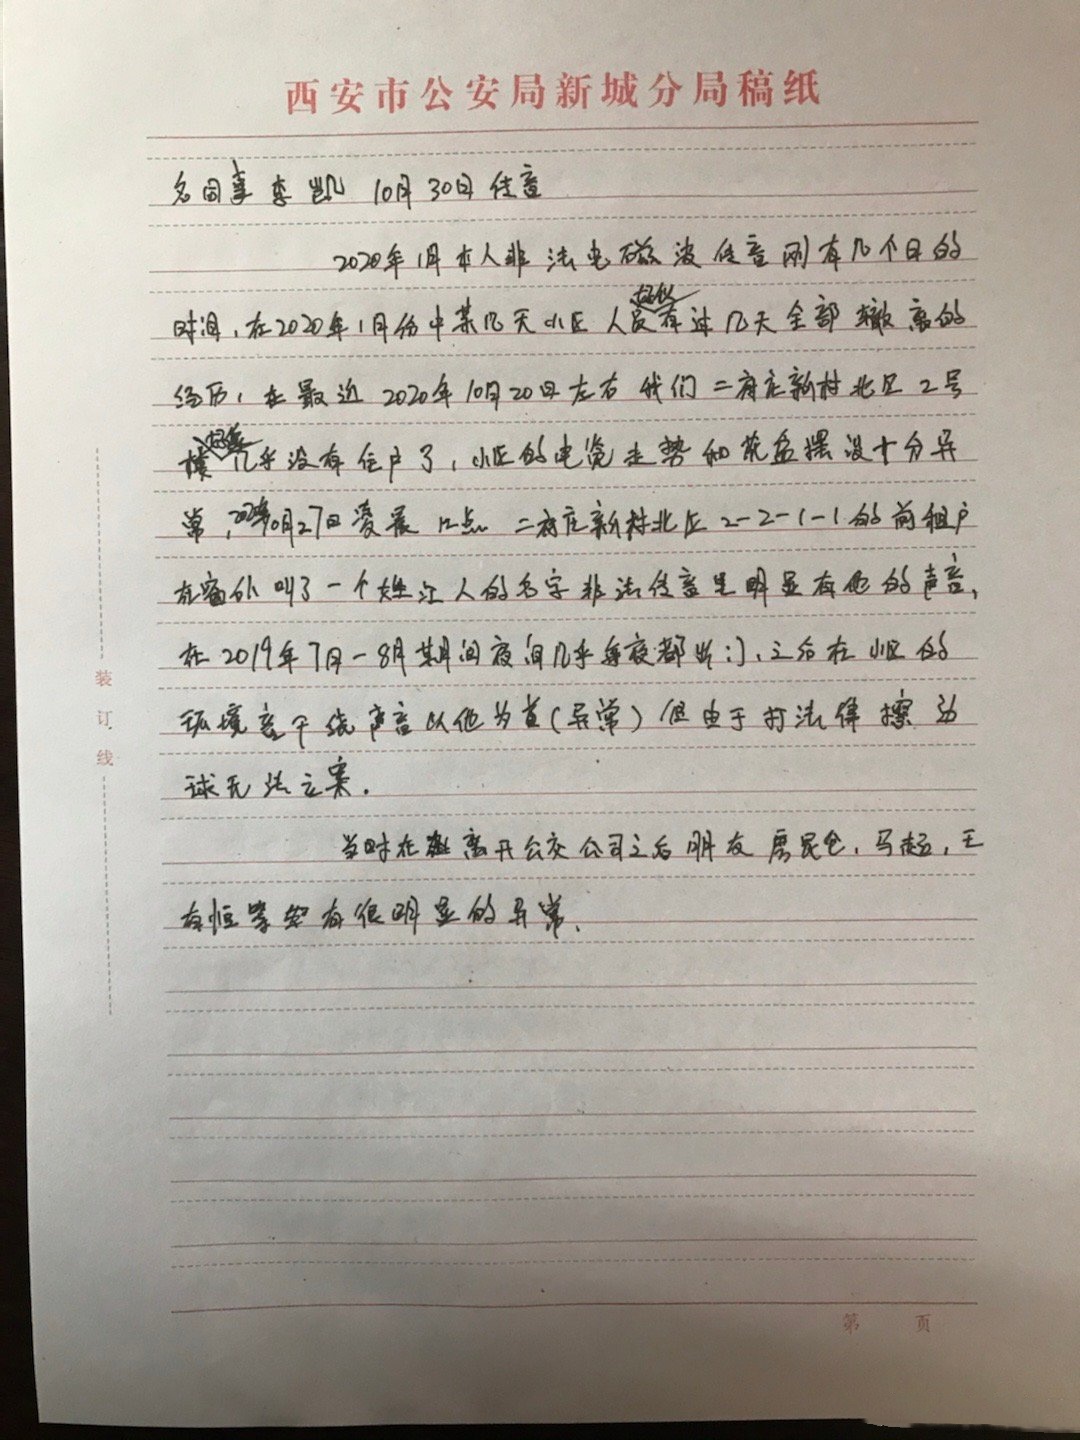 西安市公安局新城分局稿纸
李凯 10月30日传音
2020年1月本人非法电磁波传音刚有几个月的
时间,在2020年1月份中某几天小区人员好似有过几天全部撤离的
经历,在最近2020年10月20日左右我们二府庄新村北区2号
楼好像几乎没有住户了,小区的电缆走势和花盆摆设十分异
常,2020年10月27日凌晨12点二府庄新村北区2-2-1-1的前租户
在窗外叫了一个姓江人的名字非法传音里明显有他的声音,
在2019年7月-8月期间夜间几乎每夜都出门,之后在小区的
环境音干扰声音以他为首(异常)但由于打法律擦边
球无法立案.
当时在离开公交公司之后朋友 ,马超,王
有恒 有很明显的异常.
装
订
线
第 页